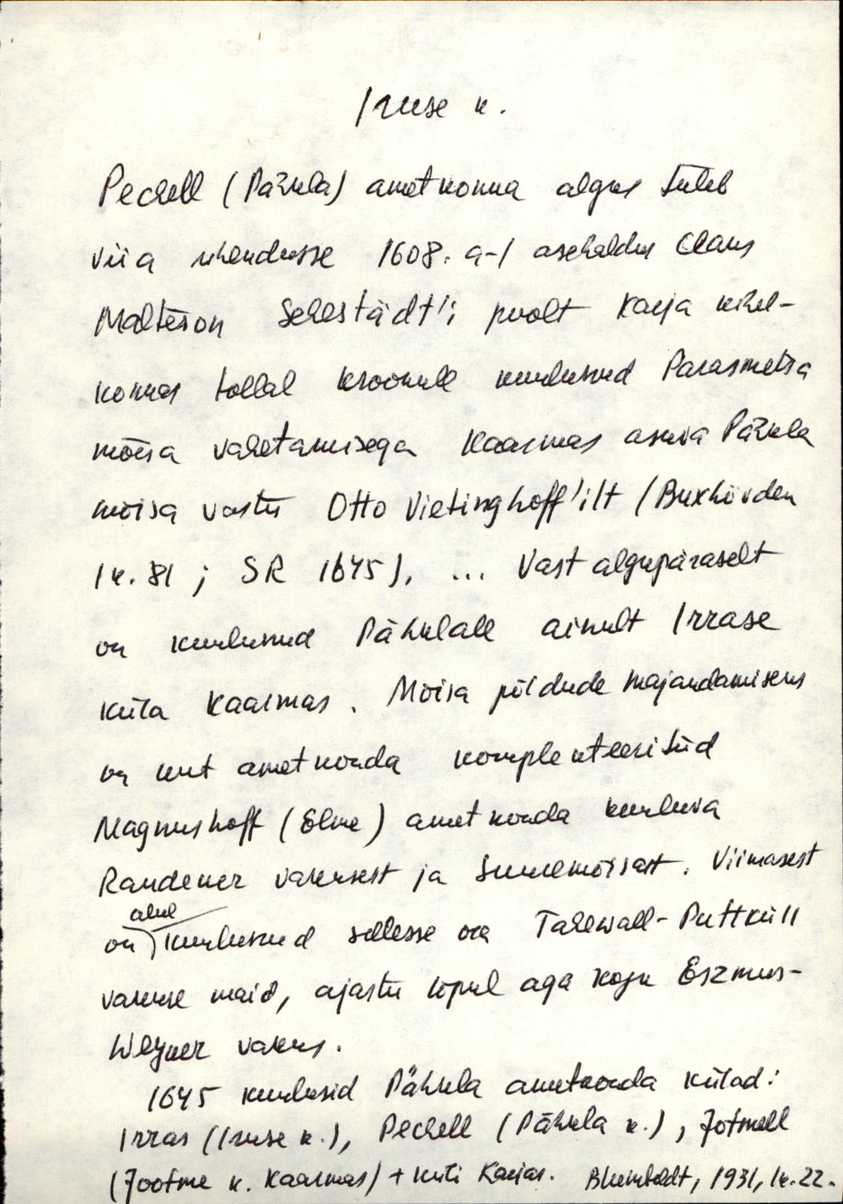 Iruse k.
Pechell (Pähkla) ametkonna algus tuleb
viia ühendusse 1608. a-l asehaldur Claus
Malteson Sehestädt'i poolt Karja kihel-
konnas tollal kroonule kuulunud Parasmetsa
mõisa vahetamisega Kaarmas asuva Pähkla
mõisa vastu Otto Vietinghoff'ilt (Buxhövden
lk. 81 ; SR 1645). ... Vast algupäraselt
on kuulunud Pähklale ainult Irrase
küla Kaarmas. Mõisa põldude majandamiseks
on uut ametkonda komplekteeritud
Magnushoff (Eline) ametkonda kuuluva
Randener vakusest ja Suuremõisast. Viimasest
on alul kuulunud sellesse osa Tahewall-Puttküll
vakuse maid, ajastu lõpul aga kogu Eszmus-
Weyner vakus.
1645 kuulusid Pähkla ametkonda külad:
Irras (Iruse k.), Pechell (Pähkla k.), Jotmell
(Jootme k. Kaarmas) + küli Karjas. Blumfeldt, 1931, lk. 22.